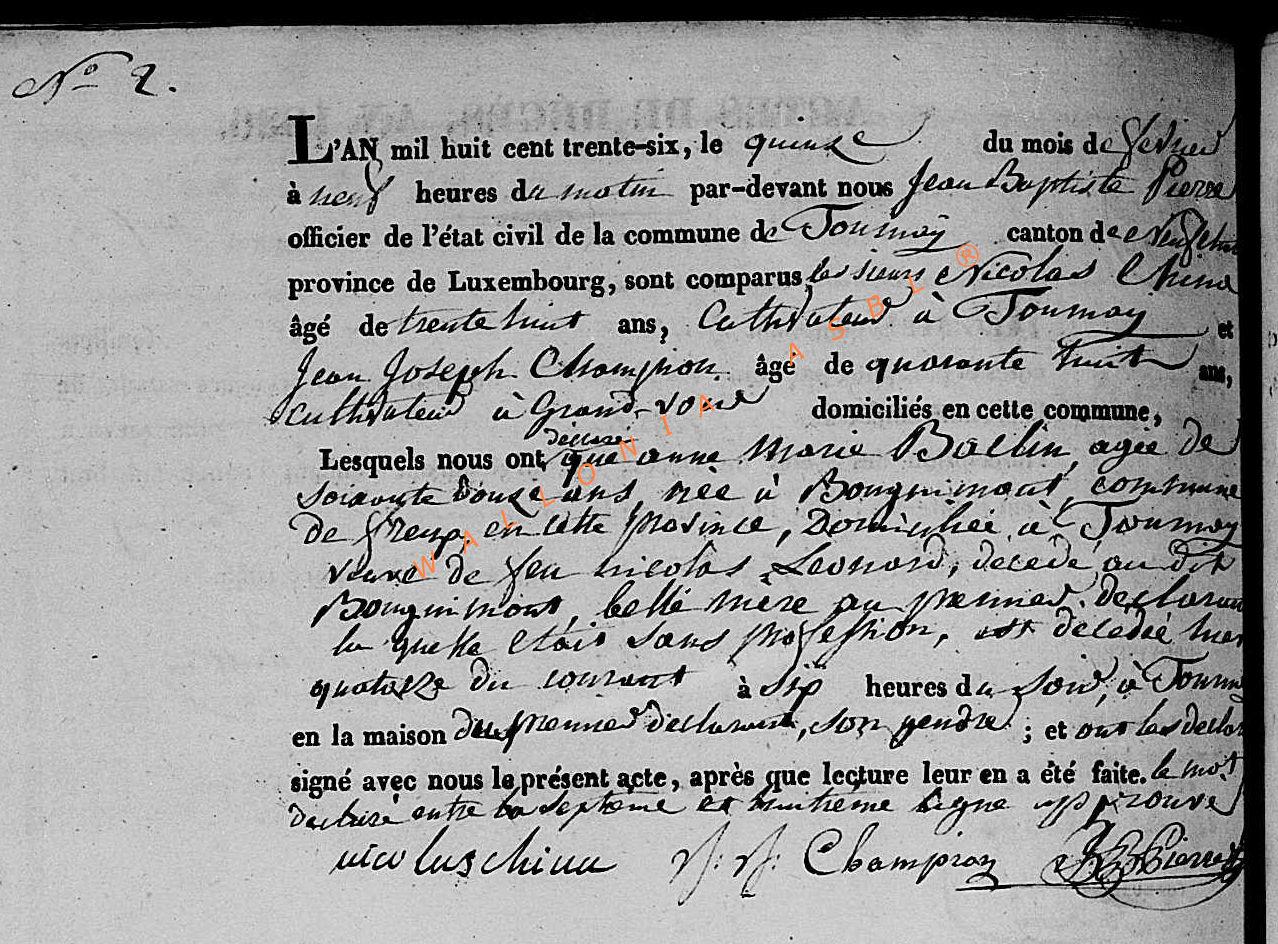 N° 2.
L'AN mil huit cent trente-six, le quinze du mois de fevrier
à neuf heures du matin par-devant nous Jean Baptiste Pierre
officier de l'état civil de la commune de Tournay canton de Neufchat
province de Luxembourg, sont comparus, les sieurs Nicolas China
âgé de trente huit ans, Cultivateur à Tournay et
Jean Joseph Champion âgé de quarante huit ans,
Cultivateur à Grand-voir domiciliés en cette commune,
déclaré
Lesquels nous ont que anne Marie Baclin, agée de
soixante douze ans, née à Bougnimont, commune
de freux, en cette province, Domiciliée à Tournay
veuve de feu nicolas Leonard, décédé au dit
Bougnimont, belle mère au premier declarant
la quelle etait sans profession, est décédée hier
quatorze du courant à six heures du soir, à Tourna
en la maison du premier declarant, son gendre ; et ont les declar
signé avec nous le présent acte, après que lecture leur en a été faite. le mot
declaré entre la septeme et huitrème ligne approuvé
nicolas china J: J: Champion JB Pierre
WALLONIA ASBL ®